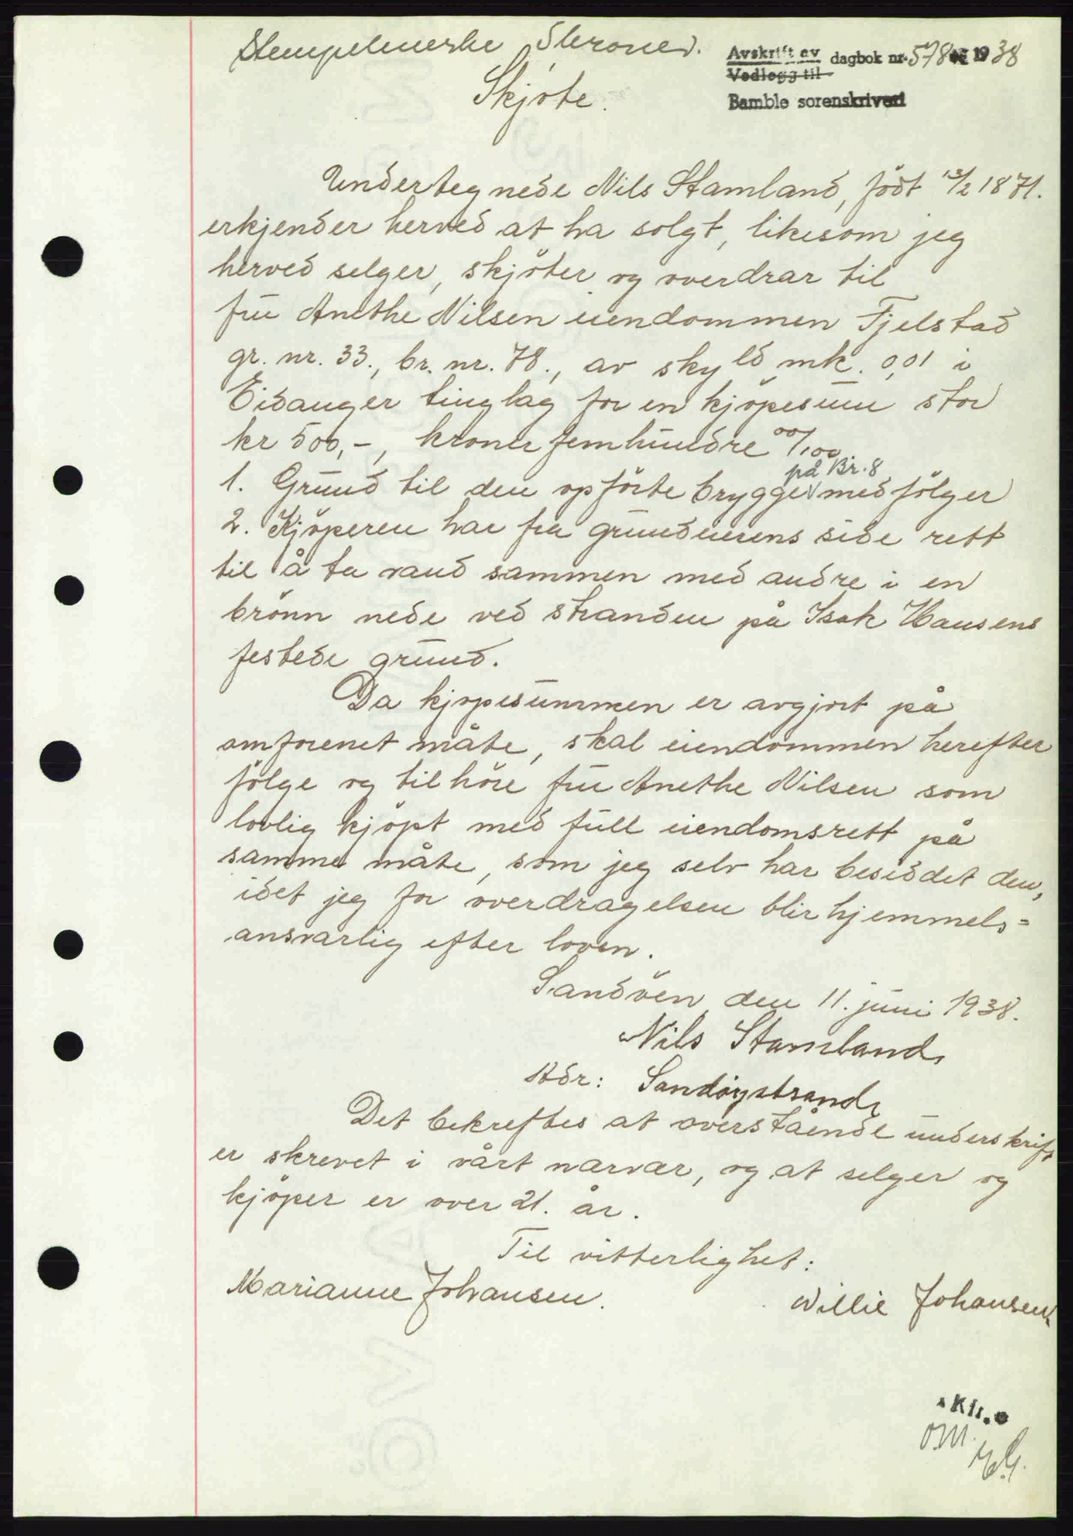 Stempelmerke 5 kroner.
Avskrift av
Vedlegg til
dagbok nr. 578 19 38
Bamble sorenskriveri
Skjöte.
Undertegnede Nils Stamland, födt 13/2 1871.
erkjender herved at ha solgt, likesom jeg
herved selger, skjöter og overdrar til
fru Anethe Nilsen eiendommen Fjelstad
gr. nr. 33., br. nr. 78., av skyld mk. 0,01 i
Eidanger tinglag for en kjöpesum stor
kr 500,-, kroner femhundre 00/100
på Br. 8
1. Grund til den opförte brygge medfölger
2. Kjöperen har fra grundeierens side rett
til å ta vand sammen med andre i en
brönn nede ved stranden på Isak Hansens
festede grund.
Da kjöpesummen er avgjort på
omforenet måte, skal eiendommen herefter
fölge og tilhöre fru Anethe Nilsen som
lovlig kjöpt med full eiendomsrett på
samme måte, som jeg selv har besiddet den,
idet jeg for overdragelsen blir hjemmels=
ansvarlig efter loven.
Sandöen, den 11. juni 1938.
Nils Stamland,
Adr: Sandöystrand,
Det bekreftes at overstående underskrift
er skrevet i vårt närvär, og at selger og
kjöper er over 21. år.
Til vitterlighet:
Marianne Johansen. Willie Johansen.